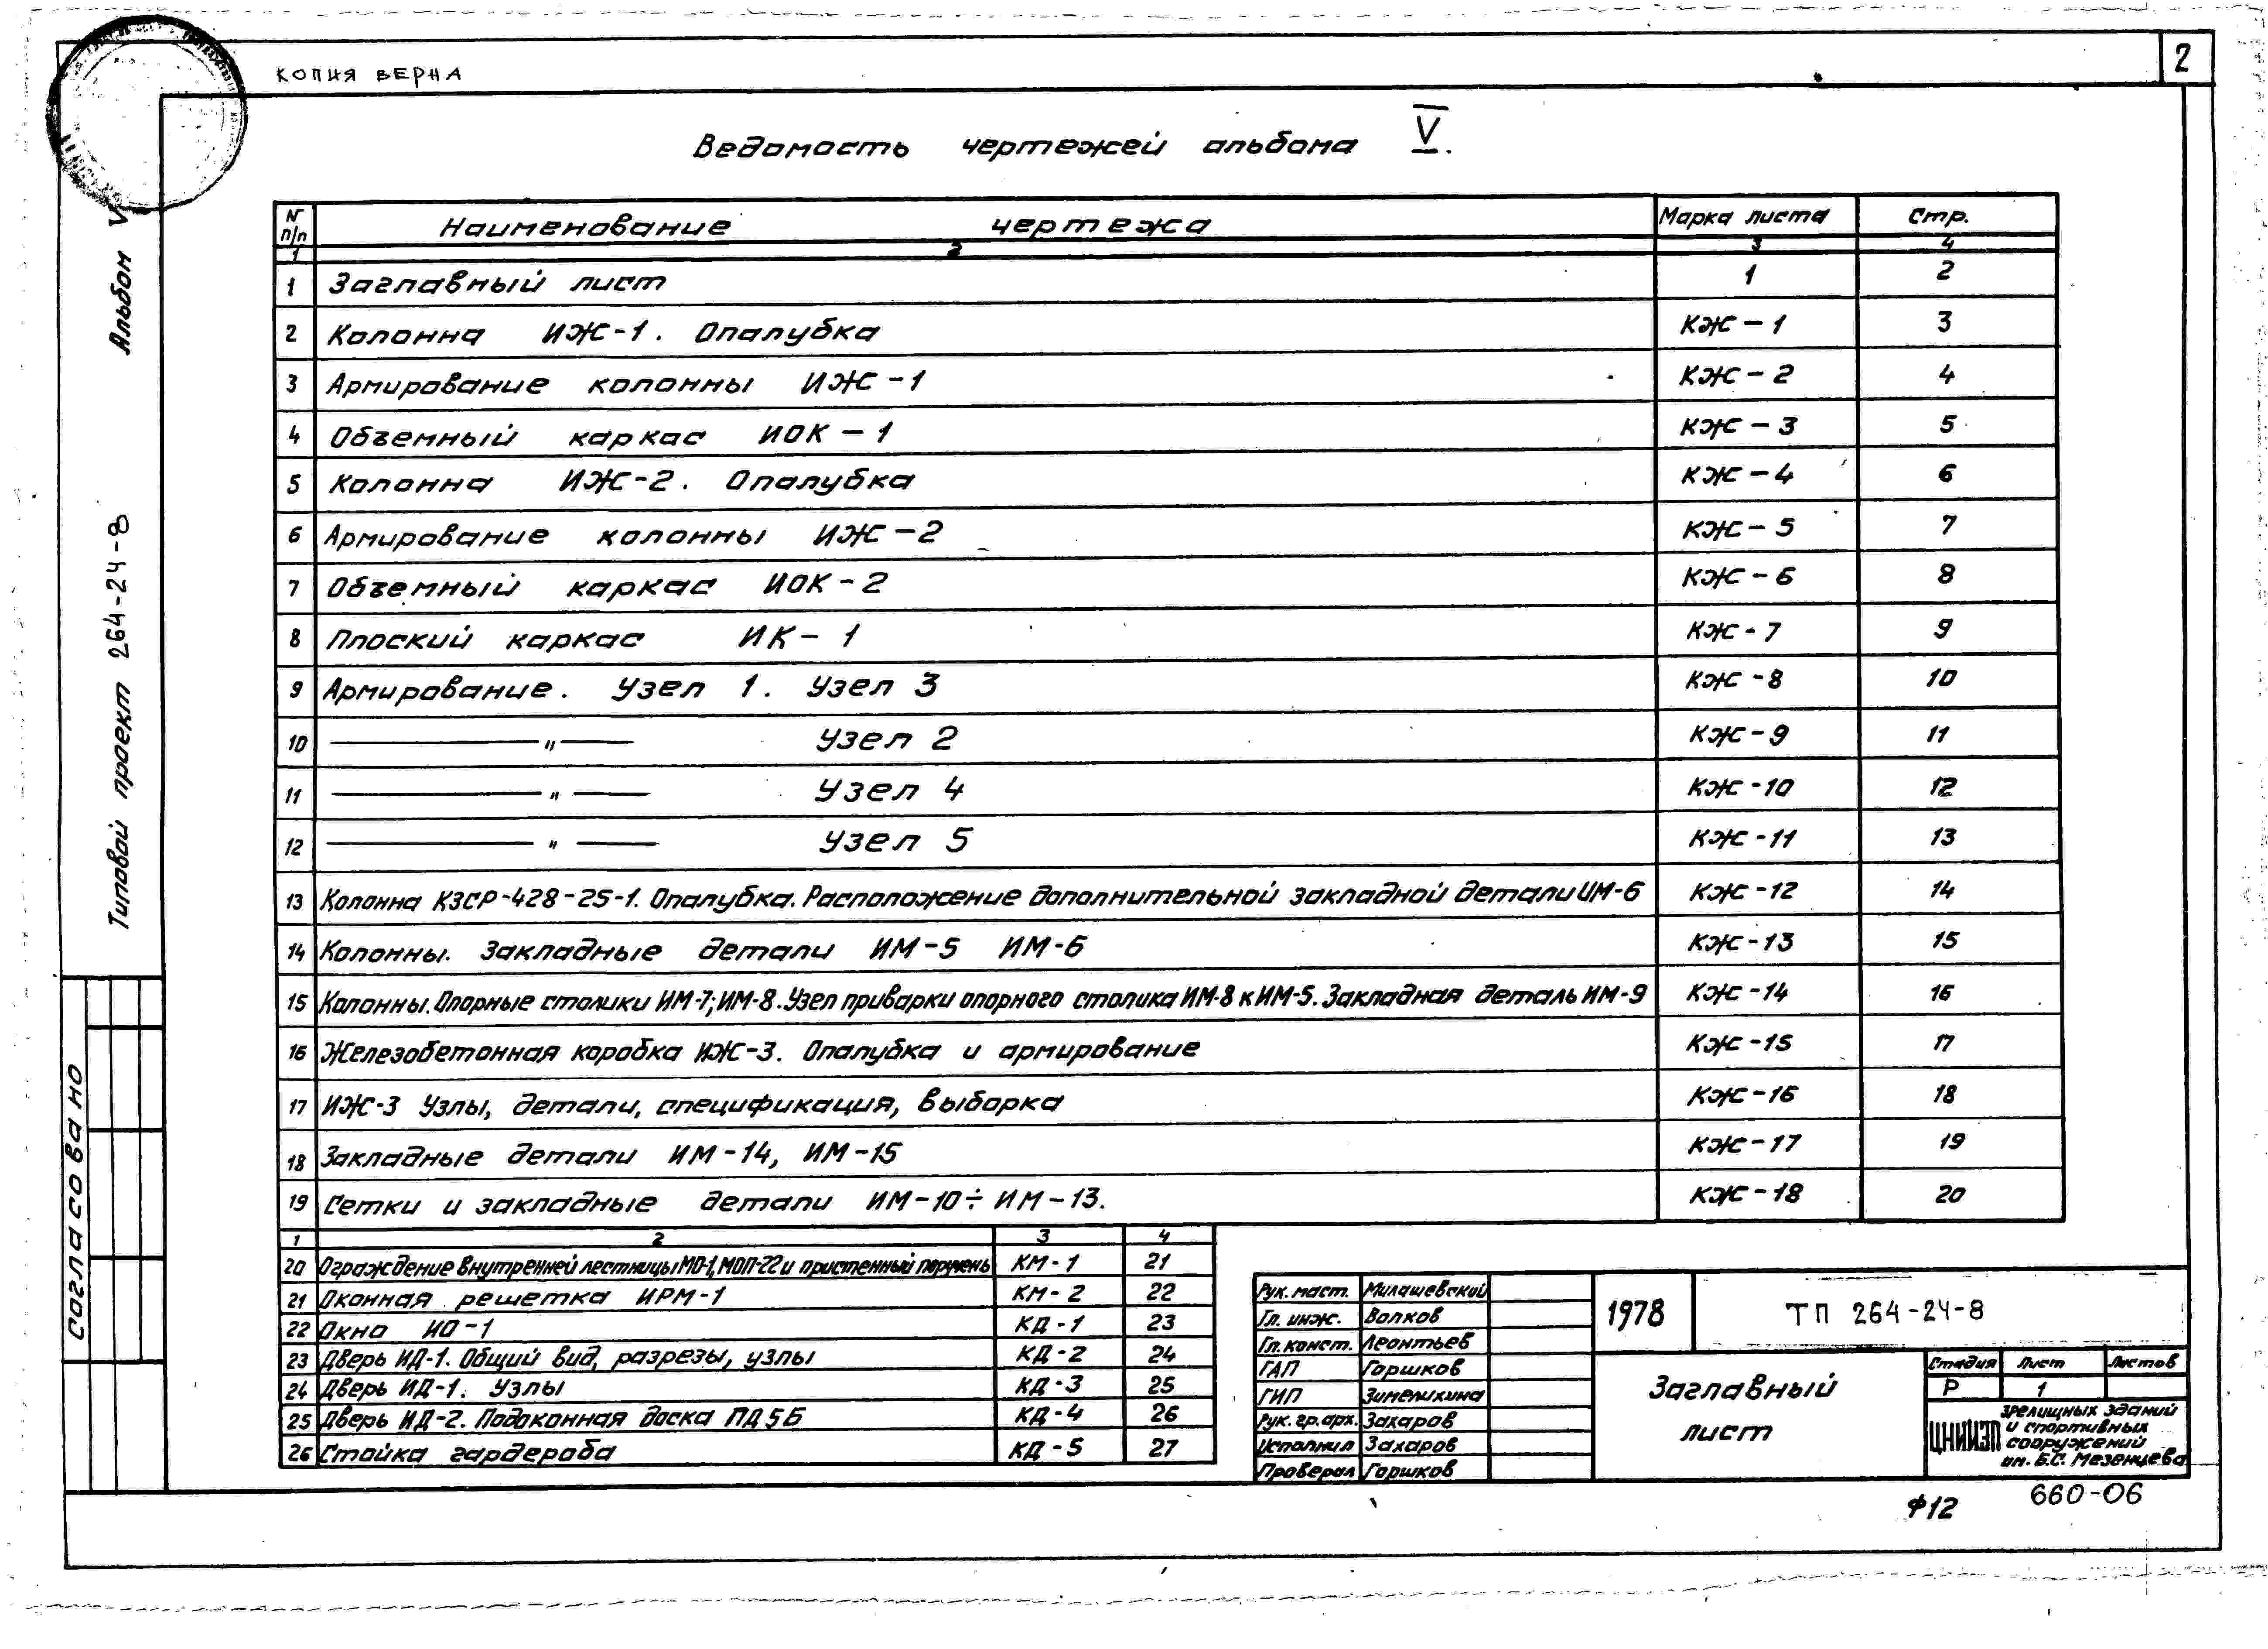 КОПИЯ ВЕРНА
2
Ведомость чертежей альбома V.
N п/п Наименование чертежа Марка листа Стр.
1 2 3 4
1 Заглавный лист 1 2
2 Колонна ИЖ-1. Опалубка КЖ-1 3
3 Армирование колонны ИЖ-1 КЖ-2 4
4 Объемный каркас ИОК-1 КЖ-3 5
5 Колонна ИЖ-2. Опалубка КЖ-4 6
6 Армирование колонны ИЖ-2 КЖ-5 7
7 Объемный каркас ИОК-2 КЖ-6 8
8 Плоский каркас ИК-1 КЖ-7 9
9 Армирование. Узел 1. Узел 3 КЖ-8 10
10 —— " —— Узел 2 КЖ-9 11
11 —— " —— Узел 4 КЖ-10 12
12 —— " —— Узел 5 КЖ-11 13
13 Колонна КЗСР-428-25-1. Опалубка. Расположение дополнительной закладной детали ИМ-6 КЖ-12 14
14 Колонны. Закладные детали ИМ-5 ИМ-6 КЖ-13 15
15 Колонны. Опорные столики ИМ-7; ИМ-8. Узел приварки опорного столика ИМ-8 к ИМ-5. Закладная деталь ИМ-9 КЖ-14 16
16 Железобетонная коробка ИЖ-3. Опалубка и армирование КЖ-15 17
17 ИЖ-3 Узлы, детали, спецификация, выборка КЖ-16 18
18 Закладные детали ИМ-14, ИМ-15 КЖ-17 19
19 Сетки и закладные детали ИМ-10÷ИМ-13. КЖ-18 20
1 2 3 4
20 Ограждение внутренней лестницы МО-1, МОП-22 и пристенный поручень КМ-1 21
21 Оконная решетка ИРМ-1 КМ-2 22
22 Окно ИО-1 КД-1 23
23 Дверь ИД-1. Общий вид, разрезы, узлы КД-2 24
24 Дверь ИД-1. Узлы КД-3 25
25 Дверь ИД-2. Подоконная доска ПД5Б КД-4 26
26 Стойка гардероба КД-5 27
Рук. маст. Милашевский
Гл. инж. Волков
Гл. конст. Леонтьев
ГАП Горшков
ГИП Зимелихина
Рук. гр. арх. Захаров
Исполнил Захаров
Проверал Горшков
1978
ТП 264-24-8
Заглавный
лист
Стадия Лист Листов
Р 1
ЦНИИЭП
зрелищных зданий
и спортивных
сооружений
им. Б.С. Мезенцева
Ф12
660-06
Альбом V
Типовой проект 264-24-8
Согласовано